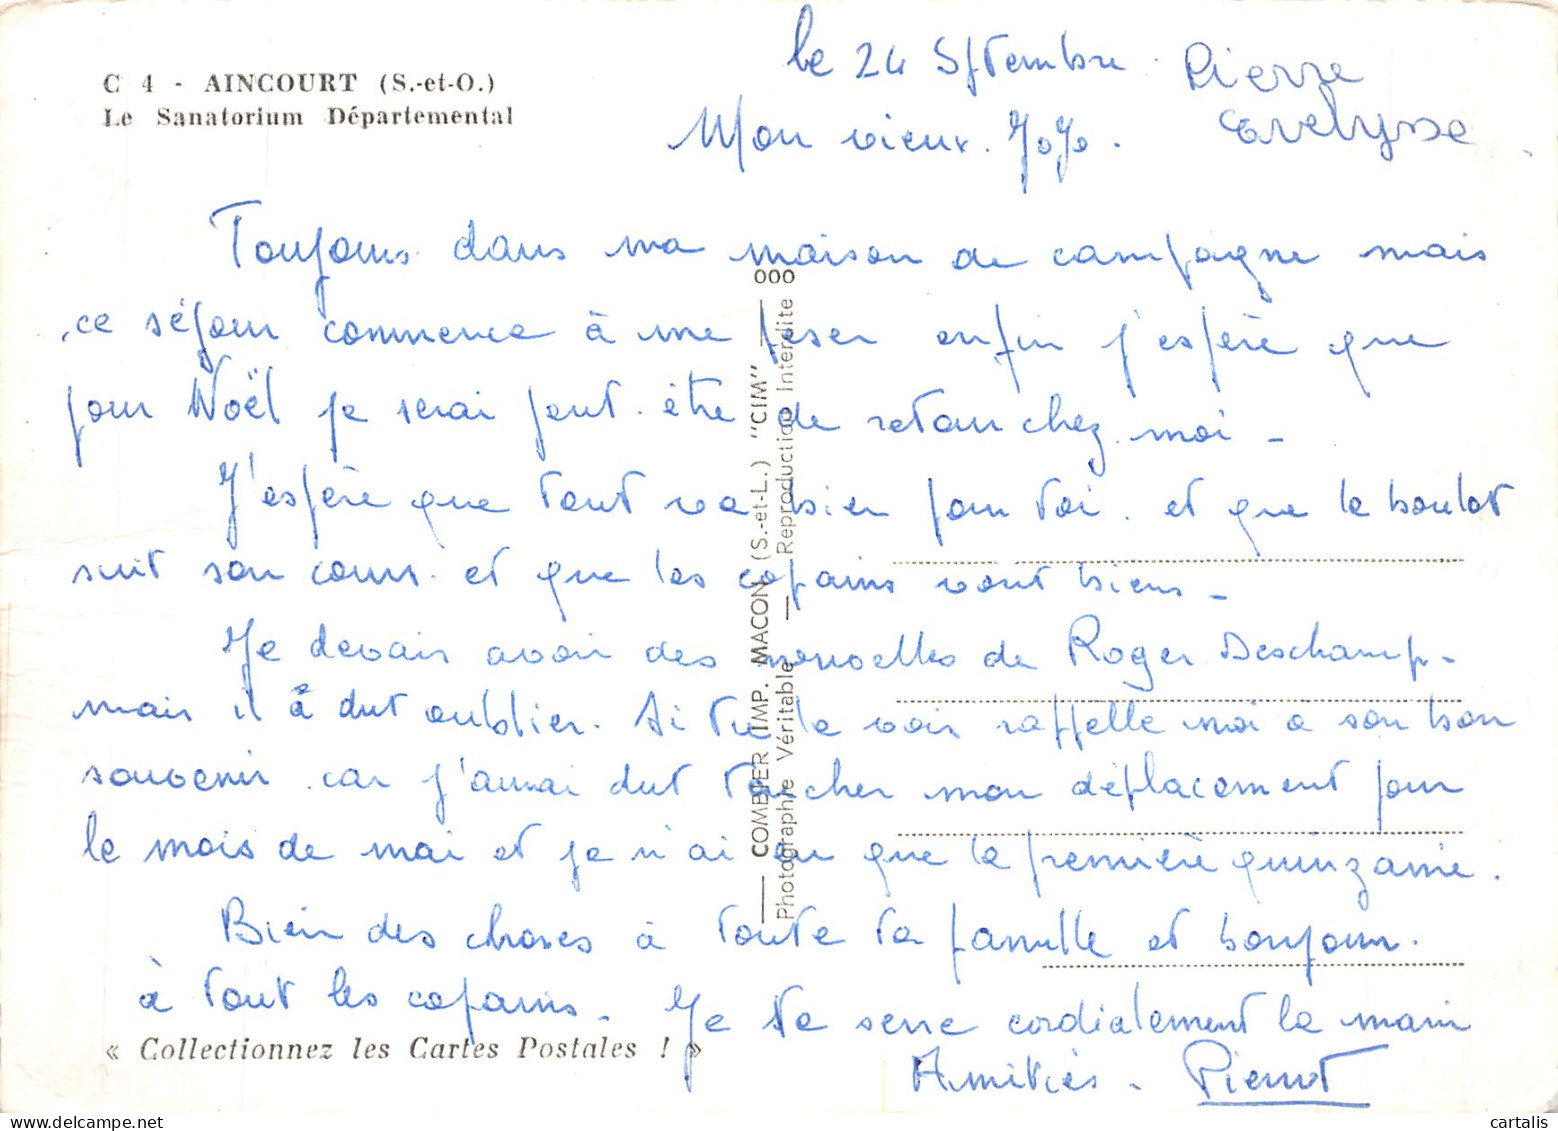 C 4 - AINCOURT (S.-et-O.)
Le Sanatorium Départemental
le 24 Sptembre.
Pierre
Evelysse
Mon vieux. JoJo.
Toujours dans ma maison de campagne mais
ce séjour commence à me peser enfin j'espère que
pour Noël je serai peut. être de retour chez moi -
J'espère que tout va bien pour toi. et que le boulot
suit son cours. et que les copains vont biens -
Je devais avoir des nouvelles de Roger Deschamp -
mais il à dut oublier. Si tu le vois rappelle moi a son bon
souvenir. car j'aurai dut toucher mon déplacement pour
le mois de mai et je n'ai eu que la première quinzaine.
Bien des choses à toute ta famille et bonjour.
à tout les copains. Je te serre cordialement la main
Amitiés - Pierrot
« Collectionnez les Cartes Postales ! »
COMBIER IMP. MACON (S.-et-L.) "CIM" 000
Photographie Véritable — Reproduction Interdite
cartalis